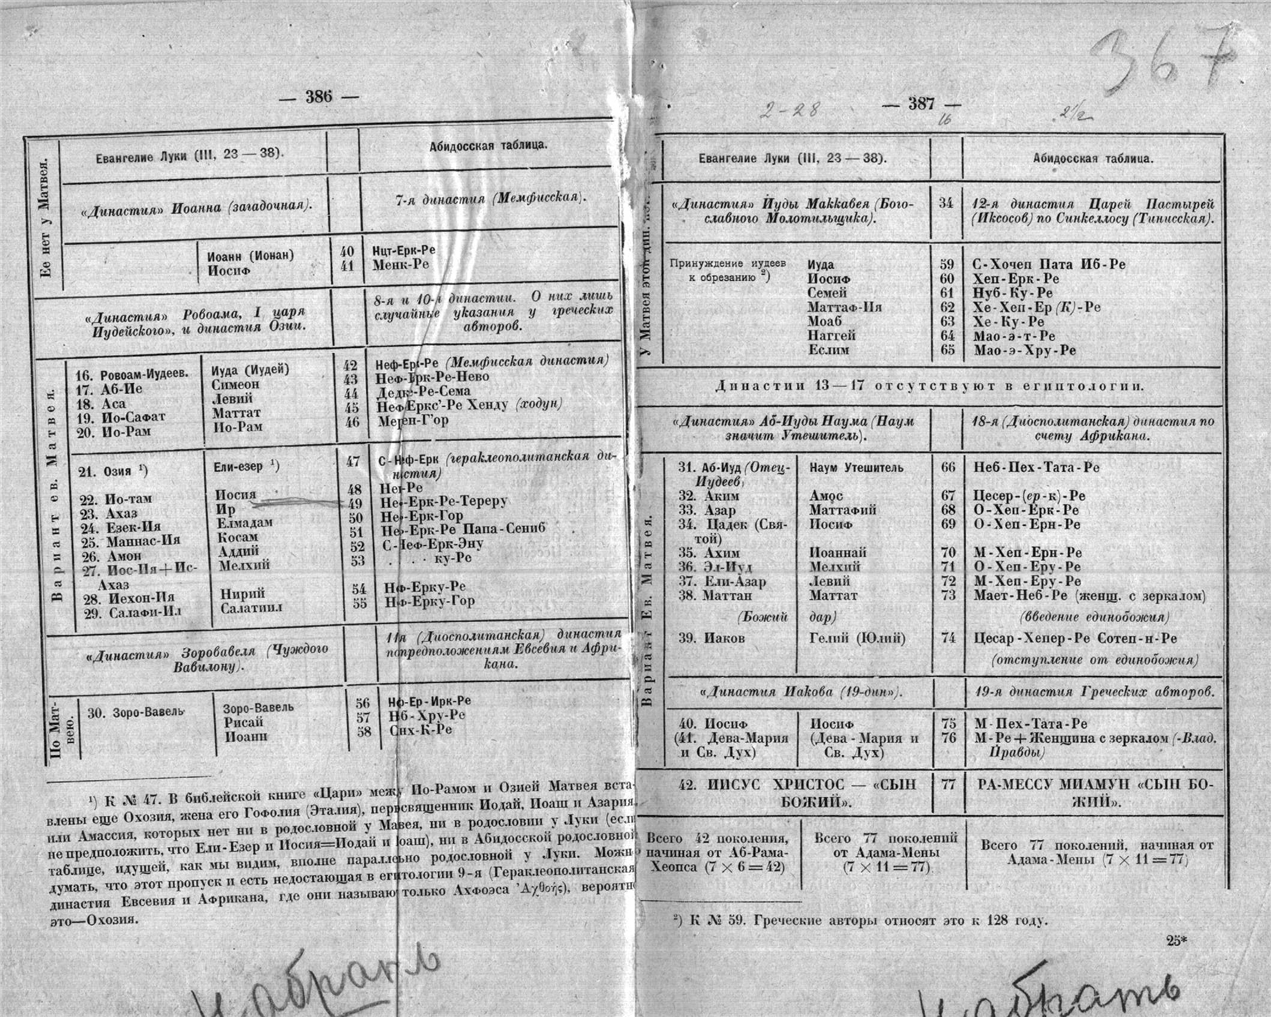 367
— 386 —
Ее нет у Матвея.
Евангелие Луки (III, 23—38).
Абидосская таблица.
«Династия» Иоанна (загадочная).
7-я династия (Мемфисская).
Иоанн (Ионан) 40 Нцт-Ерк-Ре
Иосиф 41 Менк-Ре
«Династия» Ровоама, I царя
Иудейского», и династия Озии.
8-я и 10-я династии. О них лишь
случайные указания у греческих
авторов.
Вариант ев. Матвея.
16. Ровоам-Иудеев. Иуда (Иудей) 42 Неф-Ерк-Ре (Мемфисская династия)
17. Аб-Ие Симеон 43 Неф-Ерк-Ре-Нево
18. Аса Левий 44 Дедке-Ре-Сема
19. Ио-Сафат Маттат 45 Неф-Еркс'-Ре Хенду (ходун)
20. Ио-Рам Ио-Рам 46 Мерен-Г'ор
21. Озия ¹) Ели-езер ¹) 47 С-Неф-Ерк (гераклеополитанская ди-
настия)
22. Ио-там Иосия 48 Не -Ре
23. Ахаз Ир 49 Не -Ерк-Ре-Тереру
24. Езек-Ия Елмадам 50 Не -Ерк-Гор
25. Маннас-Ия Косам 51 Не -Ерк-Ре Папа-Сениб
26. Амон Аддий 52 С-Неф-Ерк-Эну
27. Иос-Ия+Ис- Мелхий 53 . . . ку-Ре
Ахаз
28. Иехон-Ия Нирий 54 Нф-Ерку-Ре
29. Салафи-Ил Салатиил 55 Нф-Ерку-Гор
«Династия» Зоровавеля (Чуждого
Вавилону).
11я (Диосполитанская) династия
по предположениям Евсевия и Афри-
кана.
По Мат-
вею.
30. Зоро-Вавель Зоро-Вавель 56 Нф-Ер-Ирк-Ре
Рисай 57 Нб-Хру-Ре
Иоанн 58 Снх-К-Ре
¹) К № 47. В библейской книге «Цари» между Ио-Рамом и Озией Матвея вста-
влены еще Охозия, жена его Гофолия (Эталия), первосвященник Иодай, Иоаш и Азария,
или Амассия, которых нет ни в родословной у Мавея, ни в родословии у Луки (если
не предположить, что Ели-Езер и Иосия=Иодай и Иоаш), ни в Абидосской родословной
таблице, идущей, как мы видим, вполне параллельно родословной у Луки. Можно
думать, что этот пропуск и есть недостающая в египтологии 9-я (Гераклеополитанская
династия Евсевия и Африкана, где они называют только Ахфоэса Ἀχθοής), вероятно
это—Охозия.
абрать
— 387 —
2-28
16
Евангелие Луки (III, 23—38).
Абидосская таблица.
У Матвея этой дин. нет.
«Династия» Иуды Маккавея (Бого-
славного Молотильщика).
34
12-я династия Царей Пастырей
(Иксосов) по Синкеллосу (Тинисская).
Принуждение иудеев Иуда 59 С-Хочеп Пата Иб-Ре
к обрезанию ²) Иосиф 60 Хеп-Ерк-Ре
Семей 61 Нуб-Ку-Ре
Маттаф-Ия 62 Хе-Хеп-Ер (К)-Ре
Моаб 63 Хе-Ку-Ре
Наггей 64 Мао-э-т-Ре
Еслим 65 Мао-э-Хру-Ре
Династии 13—17 отсутствуют в египтологии.
«Династия» Аб-Иуды Наума (Наум
значит Утешитель).
18-я (Диосполитанская) династия по
счету Африкана.
Вариант Ев. Матвея.
31. Аб-Иуд (Отец- Наум Утешитель 66 Неб-Пех-Тата-Ре
Иудеев)
32. Аким Амос 67 Цесер-(ер-к)-Ре
33. Азар Маттафий 68 О-Хеп-Ерк-Ре
34. Цадек (Свя- Иосиф 69 О-Хеп-Ерн-Ре
той)
35. Ахим Иоаннай 70 М-Хеп-Ерн-Ре
36. Эл-Иуд Мелхий 71 О-Хеп-Еру-Ре
37. Ели-Азар Левий 72 М-Хеп-Еру-Ре
38. Маттан Маттат 73 Мает-Неб-Ре (женщ. с зеркалом)
(Божий дар) (введение единобожия)
39. Иаков Гелий (Юлий) 74 Цесар-Хепер-Ре Сотеп-н-Ре
(отступление от единобожия)
«Династия Иакова (19-дин»).
19-я династия Греческих авторов.
40. Иосиф Иосиф 75 М-Пех-Тата-Ре
(41. Дева-Мария (Дева-Мария и 76 М-Ре+Женщина с зеркалом (-Влад.
и Св. Дух) Св. Дух) Правды)
42. ИИСУС ХРИСТОС — «СЫН 77 РА-МЕССУ МИАМУН «СЫН БО-
БОЖИЙ». ЖИЙ».
Всего 42 поколения, Всего 77 поколений Всего 77 поколений, начиная от
начиная от Аб-Рама- от Адама-Мены Адама-Мены (7 X 11=77)
Хеопса (7 X 6=42) (7 X 11=77)
²) К № 59. Греческие авторы относят это к 128 году.
25*
абрать